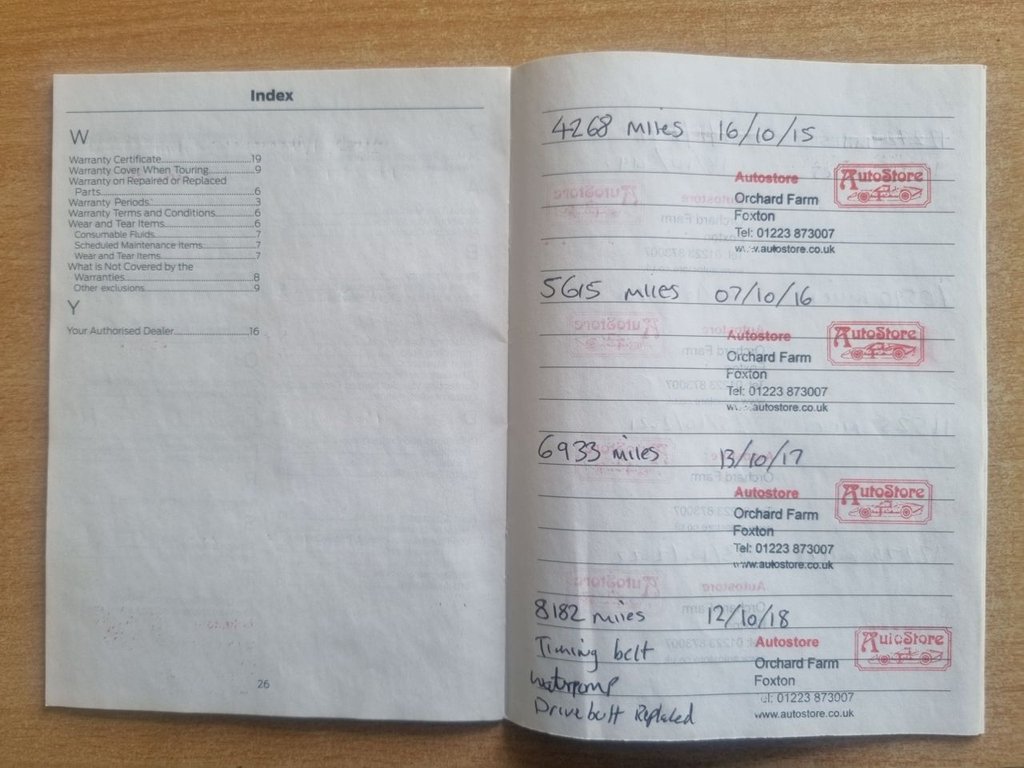 Index
W
Warranty Certificate 19
Warranty Cover When Touring 9
Warranty on Repaired or Replaced
Parts 6
Warranty Periods 3
Warranty Terms and Conditions 6
Wear and Tear Items 6
Consumable Fluids 7
Scheduled Maintenance Items 7
Wear and Tear Items 7
What is Not Covered by the
Warranties 8
Other exclusions 9
Y
Your Authorised Dealer 16
26
4268 miles 16/10/15
Autostore AutoStore
Orchard Farm
Foxton
Tel: 01223 873007
www.autostore.co.uk
5615 miles 07/10/16
Autostore AutoStore
Orchard Farm
Foxton
Tel: 01223 873007
www.autostore.co.uk
6933 miles 13/10/17
Autostore AutoStore
Orchard Farm
Foxton
Tel: 01223 873007
www.autostore.co.uk
8182 miles 12/10/18
Timing belt Autostore AutoStore
Orchard Farm
waterpump Foxton
Drive belt Replaced Tel: 01223 873007
www.autostore.co.uk